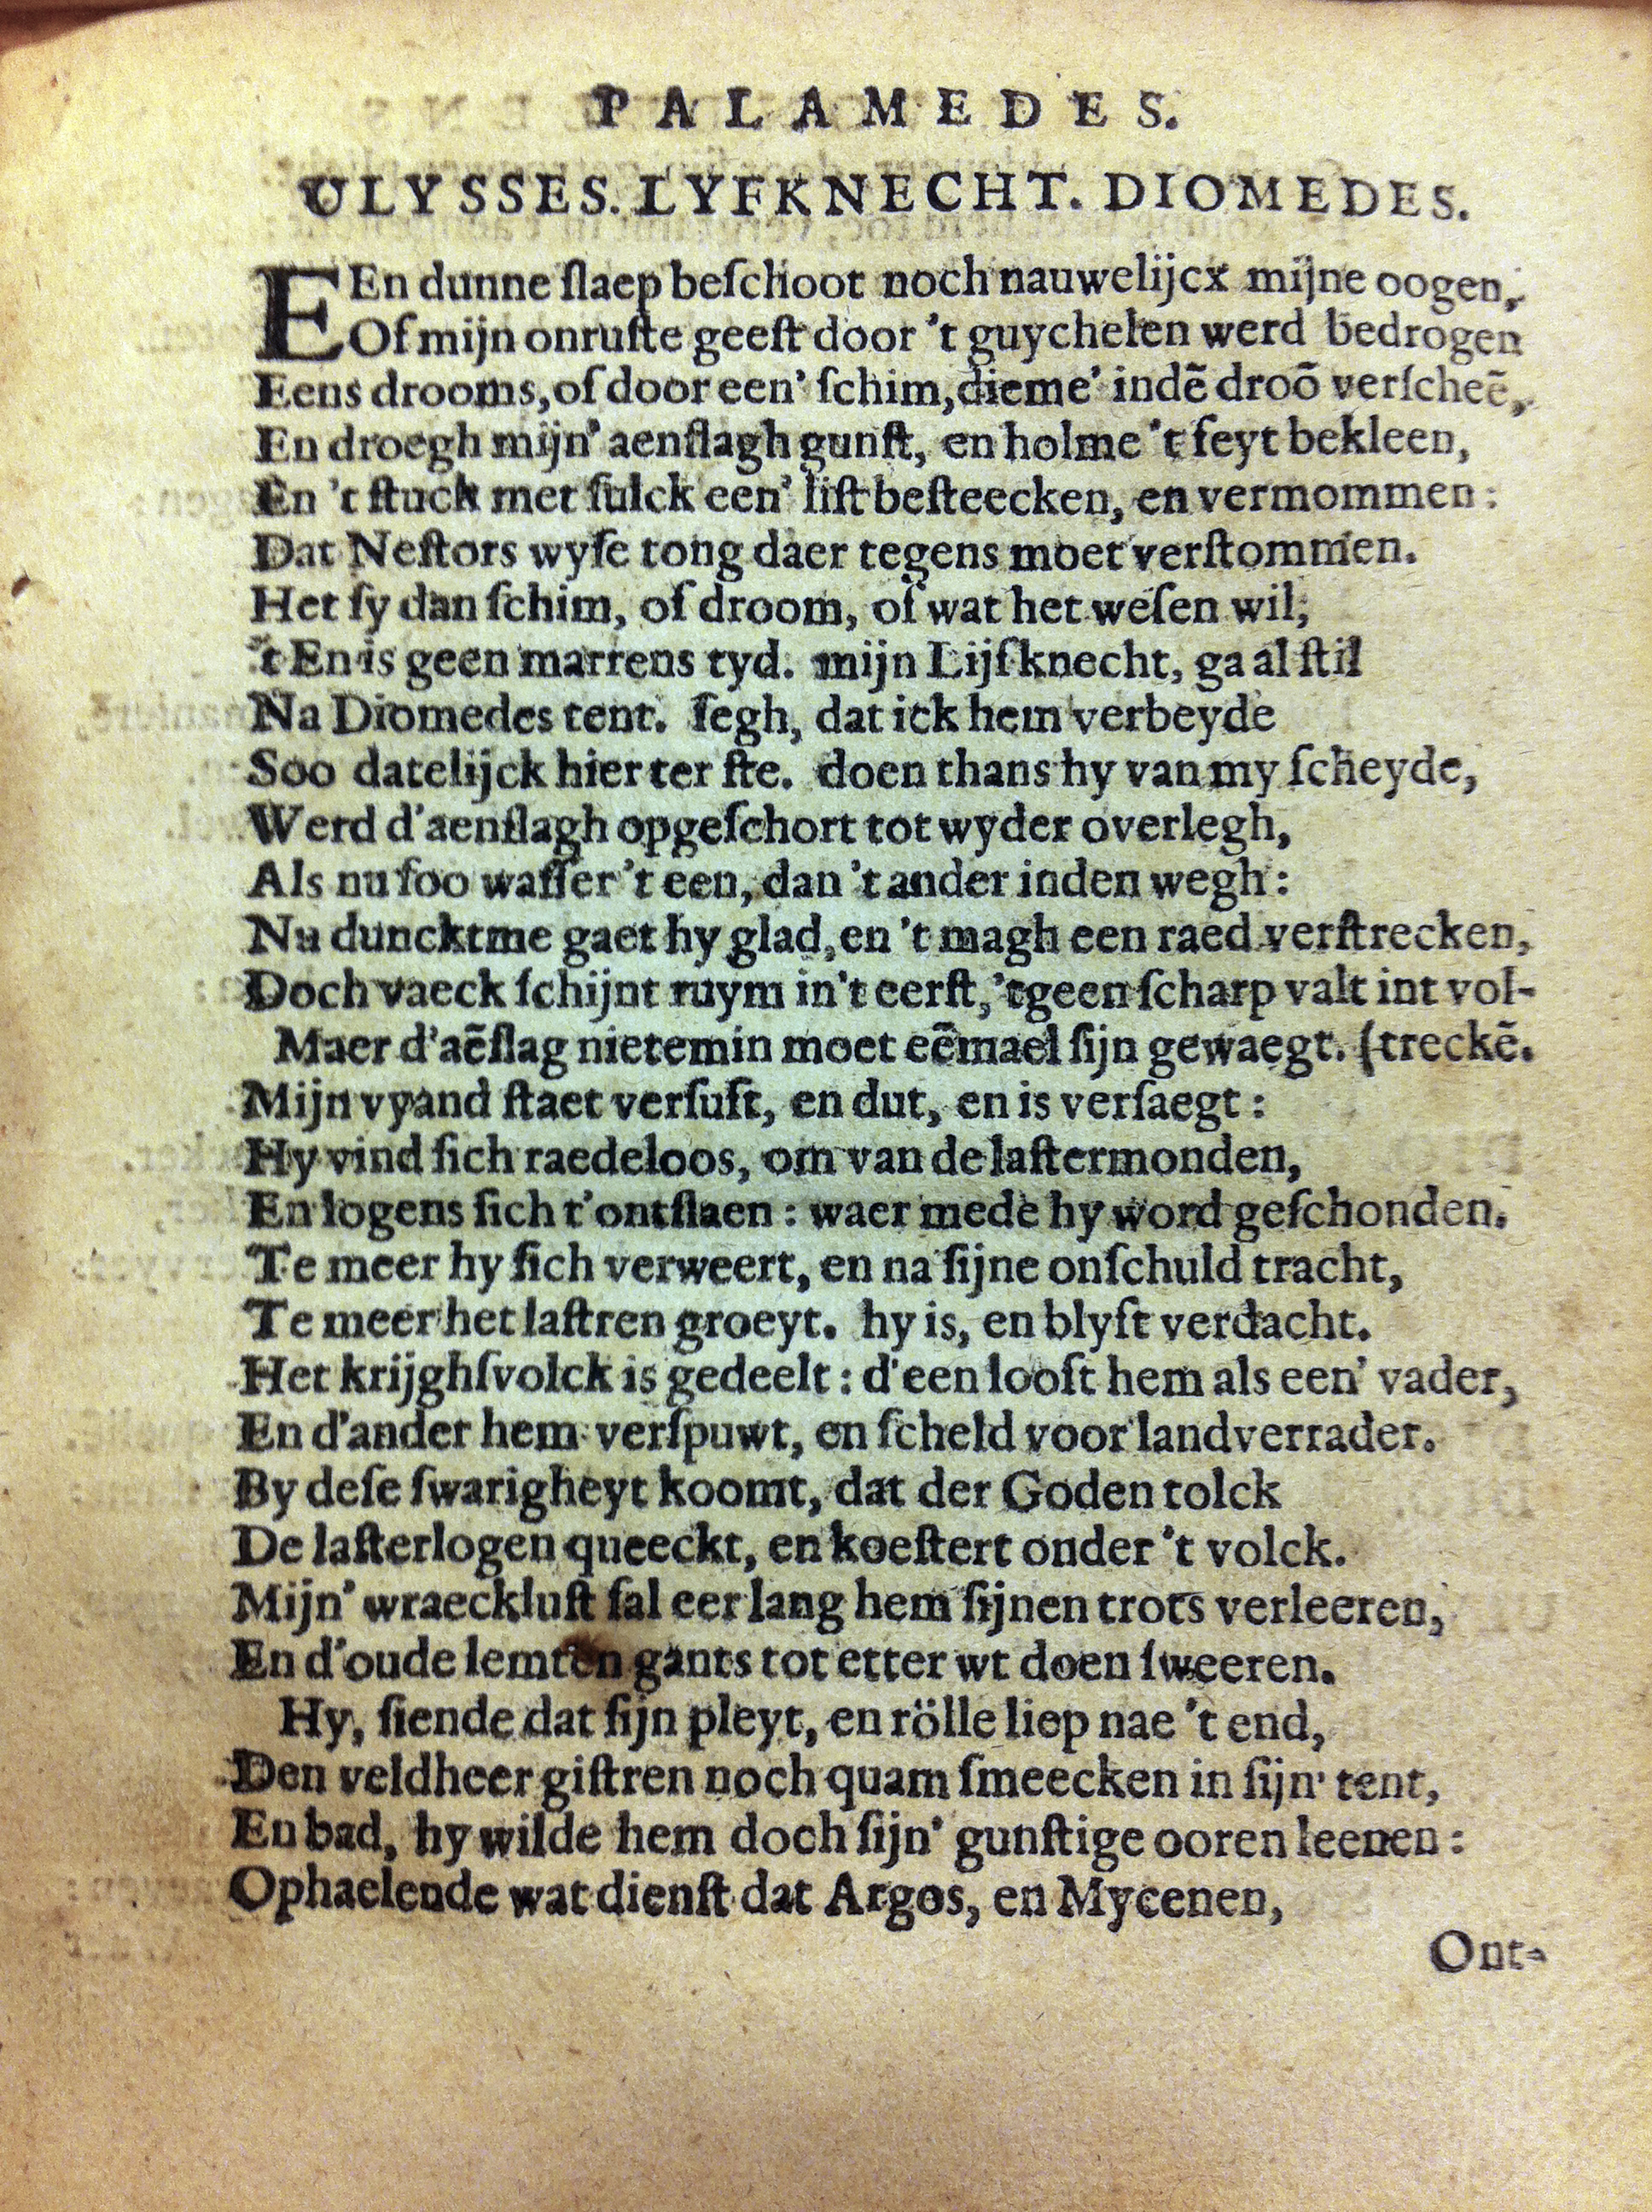 PALAMEDES.
ULYSSES. LYFKNECHT. DIOMEDES.
EEn dunne ſlaep beſchoot noch nauwelijcx mijne oogen,
Of mijn onruſte geeſt door 't guychelen werd bedrogen
Eens drooms, of door een' ſchim, dieme' indē droō verſcheē,
En droegh mijn' aenſlagh gunſt, en holme 't feyt bekleen,
En 't ſtuck met ſulck een' liſt beſteecken, en vermommen:
Dat Neſtors wyſe tong daer tegens moet verſtommen.
Het ſy dan ſchim, of droom, of wat het weſen wil;
't En is geen marrens tyd. mijn Lijfknecht, ga al ſtil
Na Diomedes tent. ſegh, dat ick hem verbeyde
Soo datelijck hier ter ſte. doen thans hy van my ſcheyde,
Werd d'aenſlagh opgeſchort tot wyder overlegh,
Als nu ſoo waſſer 't een, dan 't ander inden wegh:
Nu duncktme gaet hy glad, en 't magh een raed verſtrecken,
Doch vaeck ſchijnt ruym in't eerſt, 'tgeen ſcharp valt int vol-
Maer d'aēſlag nietemin moet eēmael ſijn gewaegt. (treckē.
Mijn vyand ſtaet verſuft, en dut, en is verſaegt:
Hy vind ſich raedeloos, om van de laſtermonden,
En logens ſich t'ontſlaen: waer mede hy word geſchonden.
Te meer hy ſich verweert, en na ſijne onſchuld tracht,
Te meer het laſtren groeyt. hy is, en blyft verdacht.
Het krijghſvolck is gedeelt: d'een looft hem als een' vader,
En d'ander hem verſpuwt, en ſcheld voor landverrader.
By deſe ſwarigheyt koomt, dat der Goden tolck
De laſterlogen queeckt, en koeſtert onder 't volck.
Mijn' wraeckluſt ſal eer lang hem ſijnen trots verleeren,
En d'oude lemten gants tot etter wt doen ſweeren.
Hy, ſiende dat ſijn pleyt, en rölle liep nae 't end,
Den veldheer giſtren noch quam ſmeecken in ſijn' tent,
En bad, hy wilde hem doch ſijn' gunſtige ooren leenen:
Ophaelende wat dienſt dat Argos, en Mycenen,
Ont-